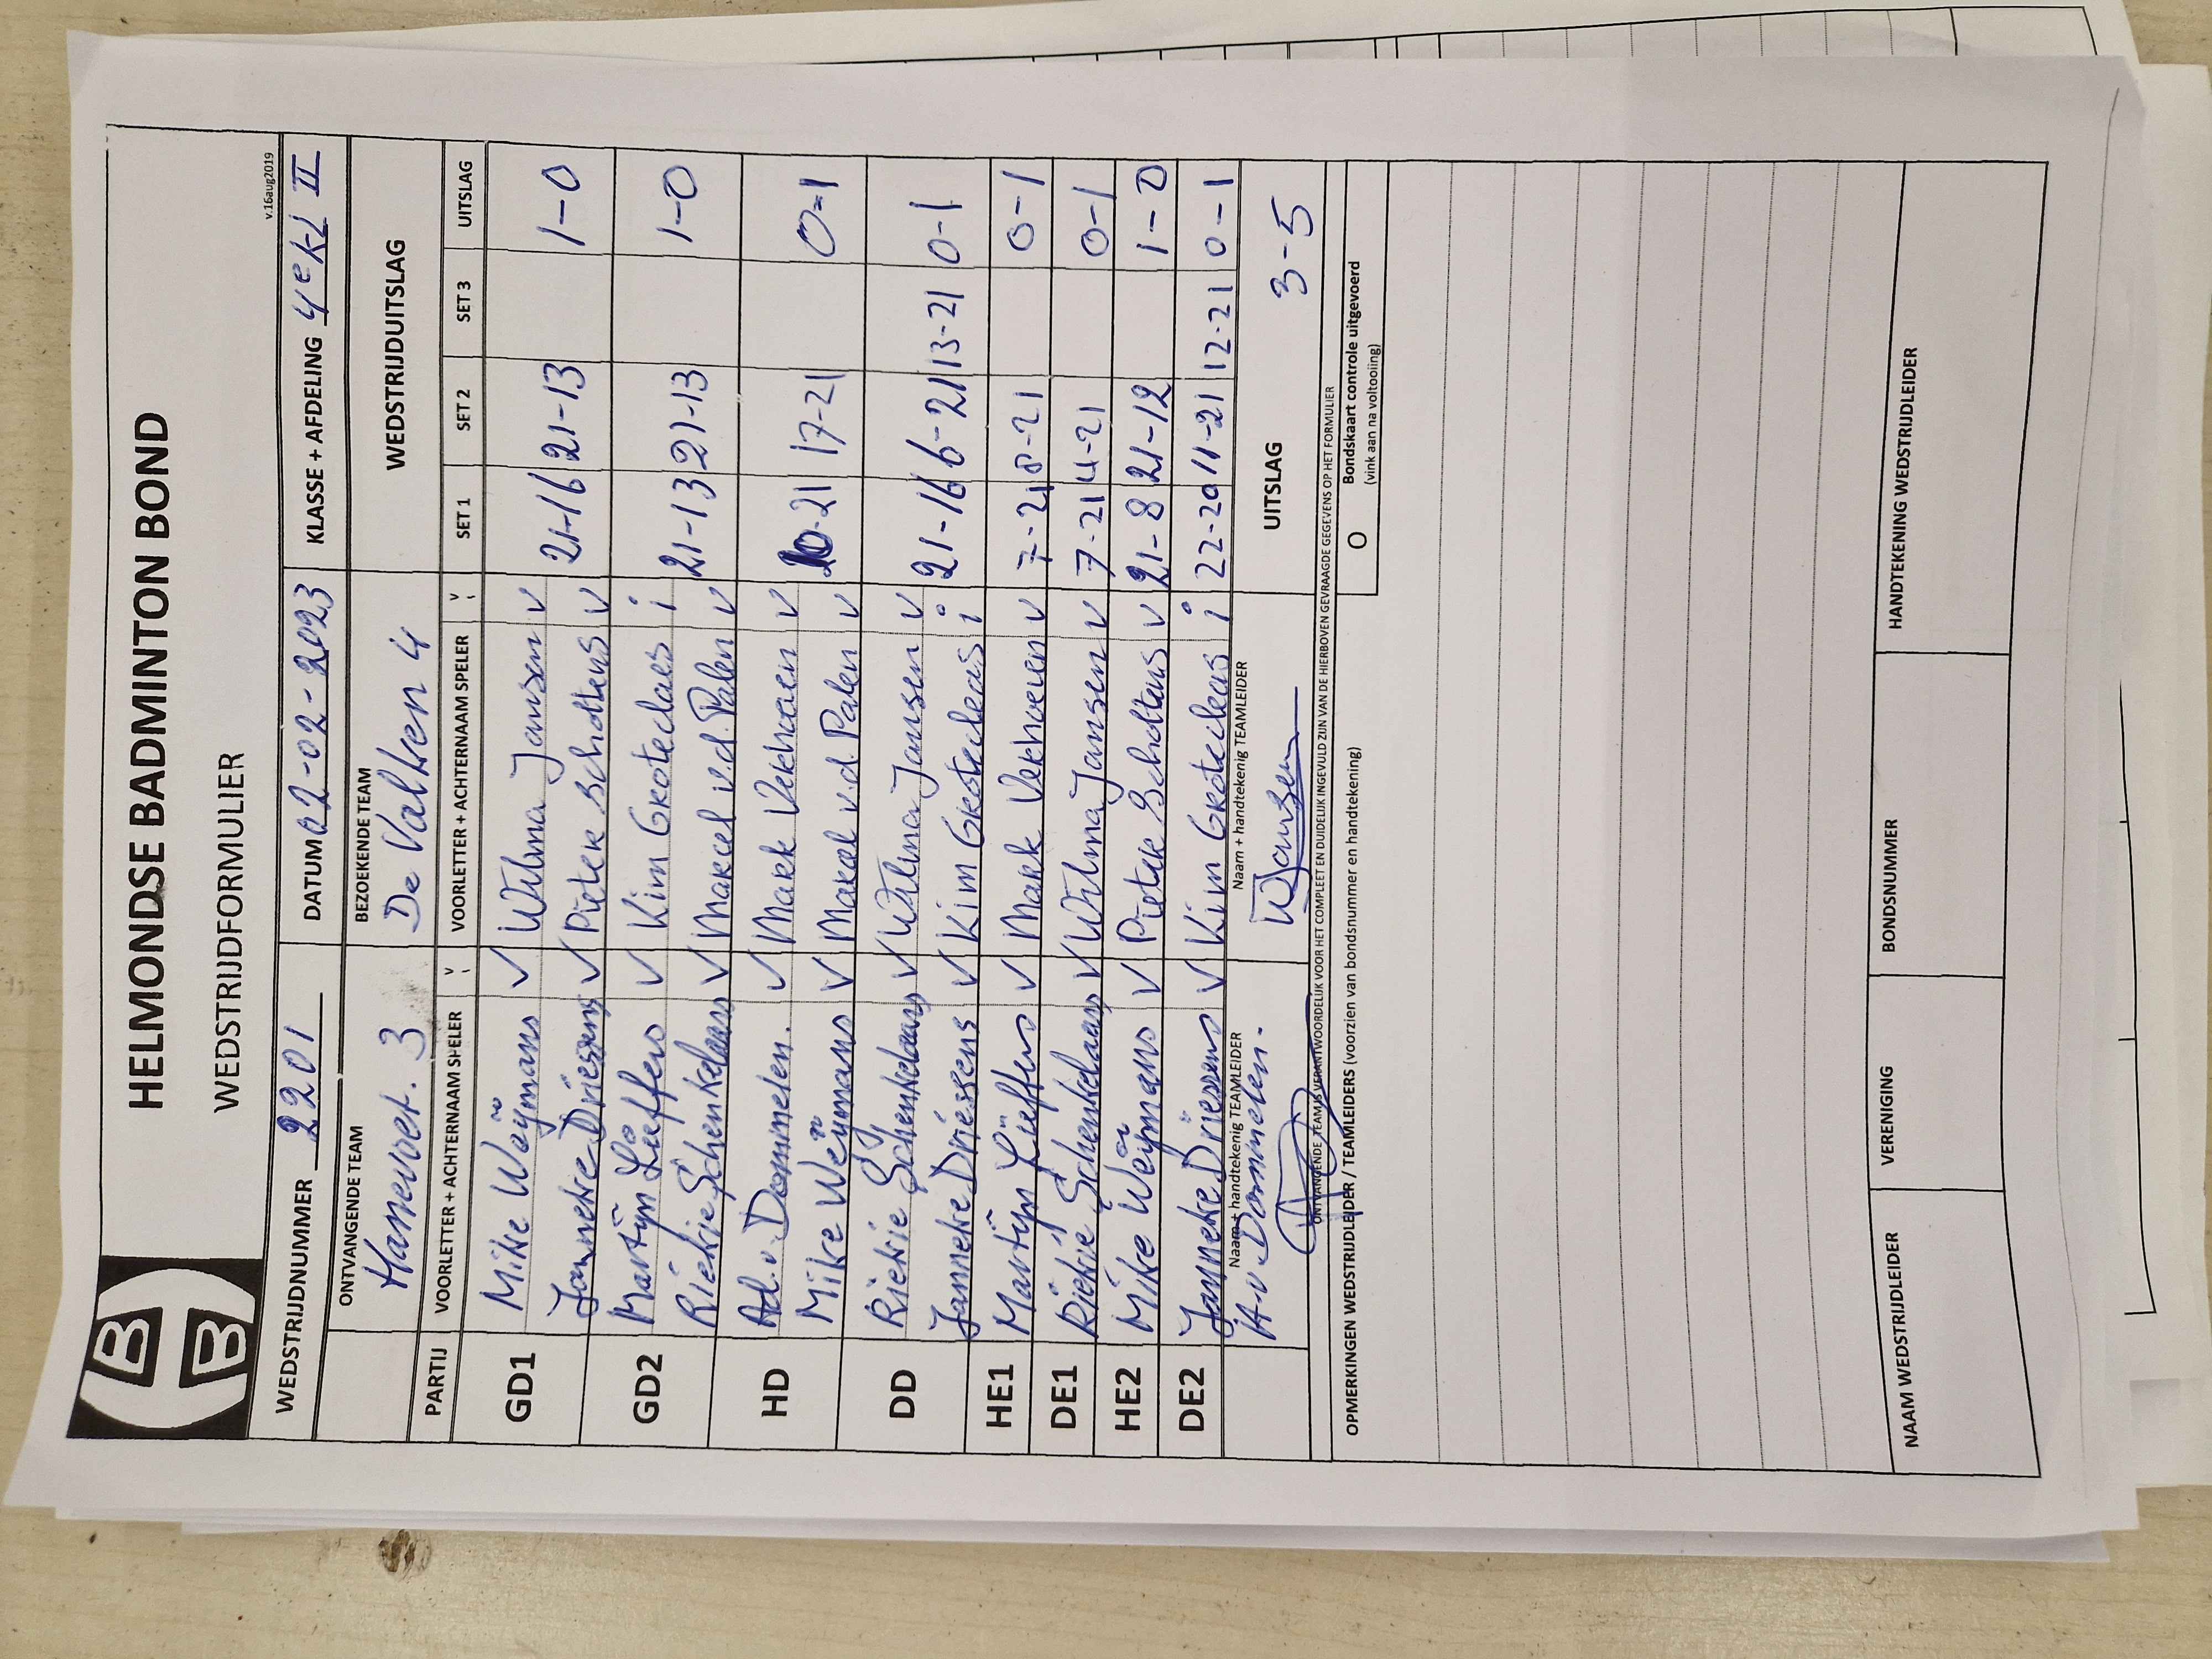 HELMONDSE BADMINTON BOND
WEDSTRIJDFORMULIER
v.16aug2019
WEDSTRIJDNUMMER 2201 DATUM 02-02-2023 KLASSE + AFDELING 4e kl II
ONTVANGENDE TEAM BEZOEKENDE TEAM WEDSTRIJDUITSLAG
Hanevoet. 3 De Valken 4
PARTIJ VOORLETTER + ACHTERNAAM SPELER V VOORLETTER + ACHTERNAAM SPELER V SET 1 SET 2 SET 3 UITSLAG
GD1 Mike Weijmans v Wilma Jansen v
Janneke Driessens v Pieter Scholtens v 21-16 21-13 1-0
GD2 Martijn Lieffers v Kim Groteclaes i
Riekie Schenkelaars v Marcel v.d. Palen v 21-13 21-13 1-0
HD Ad. v. Dommelen. v Mark Verhoeven v
Mike Weijmans v Marcel v.d. Palen v 10-21 17-21 0-1
DD Riekie Schenkelaars v Wilma Jansen v
Janneke Driessens v Kim Groteclaes i 21-16 6-21 13-21 0-1
HE1 Martijn Lieffers v Mark Verhoeven v 7-21 8-21 0-1
DE1 Riekie Schenkelaars v Wilma Jansen v 7-21 4-21 0-1
HE2 Mike Weijmans v Pieter Scholtens v 21-8 21-12 1-0
DE2 Janneke Driessens v Kim Groteclaes i 22-20 11-21 12-21 0-1
Naam + handtekenig TEAMLEIDER Naam + handtekenig TEAMLEIDER
A.v. Dommelen. WJansen UITSLAG 3-5
ONTVANGENDE TEAM IS VERANTWOORDELIJK VOOR HET COMPLEET EN DUIDELIJK INGEVULD ZIJN VAN DE HIERBOVEN GEVRAAGDE GEGEVENS OP HET FORMULIER
OPMERKINGEN WEDSTRIJDLEIDER / TEAMLEIDERS (voorzien van bondsnummer en handtekening)
O Bondskaart controle uitgevoerd
(vink aan na voltooiing)
NAAM WEDSTRIJDLEIDER VERENIGING BONDSNUMMER HANDTEKENING WEDSTRIJDLEIDER